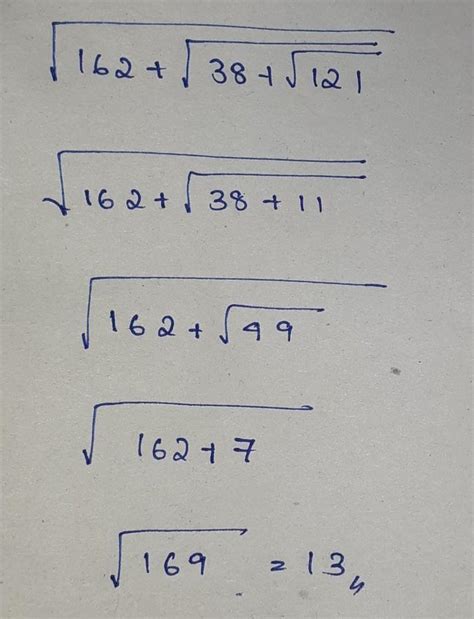 √162+√38+√121
√162+√38+11
√162+√49
√162+7
√169 = 13,,